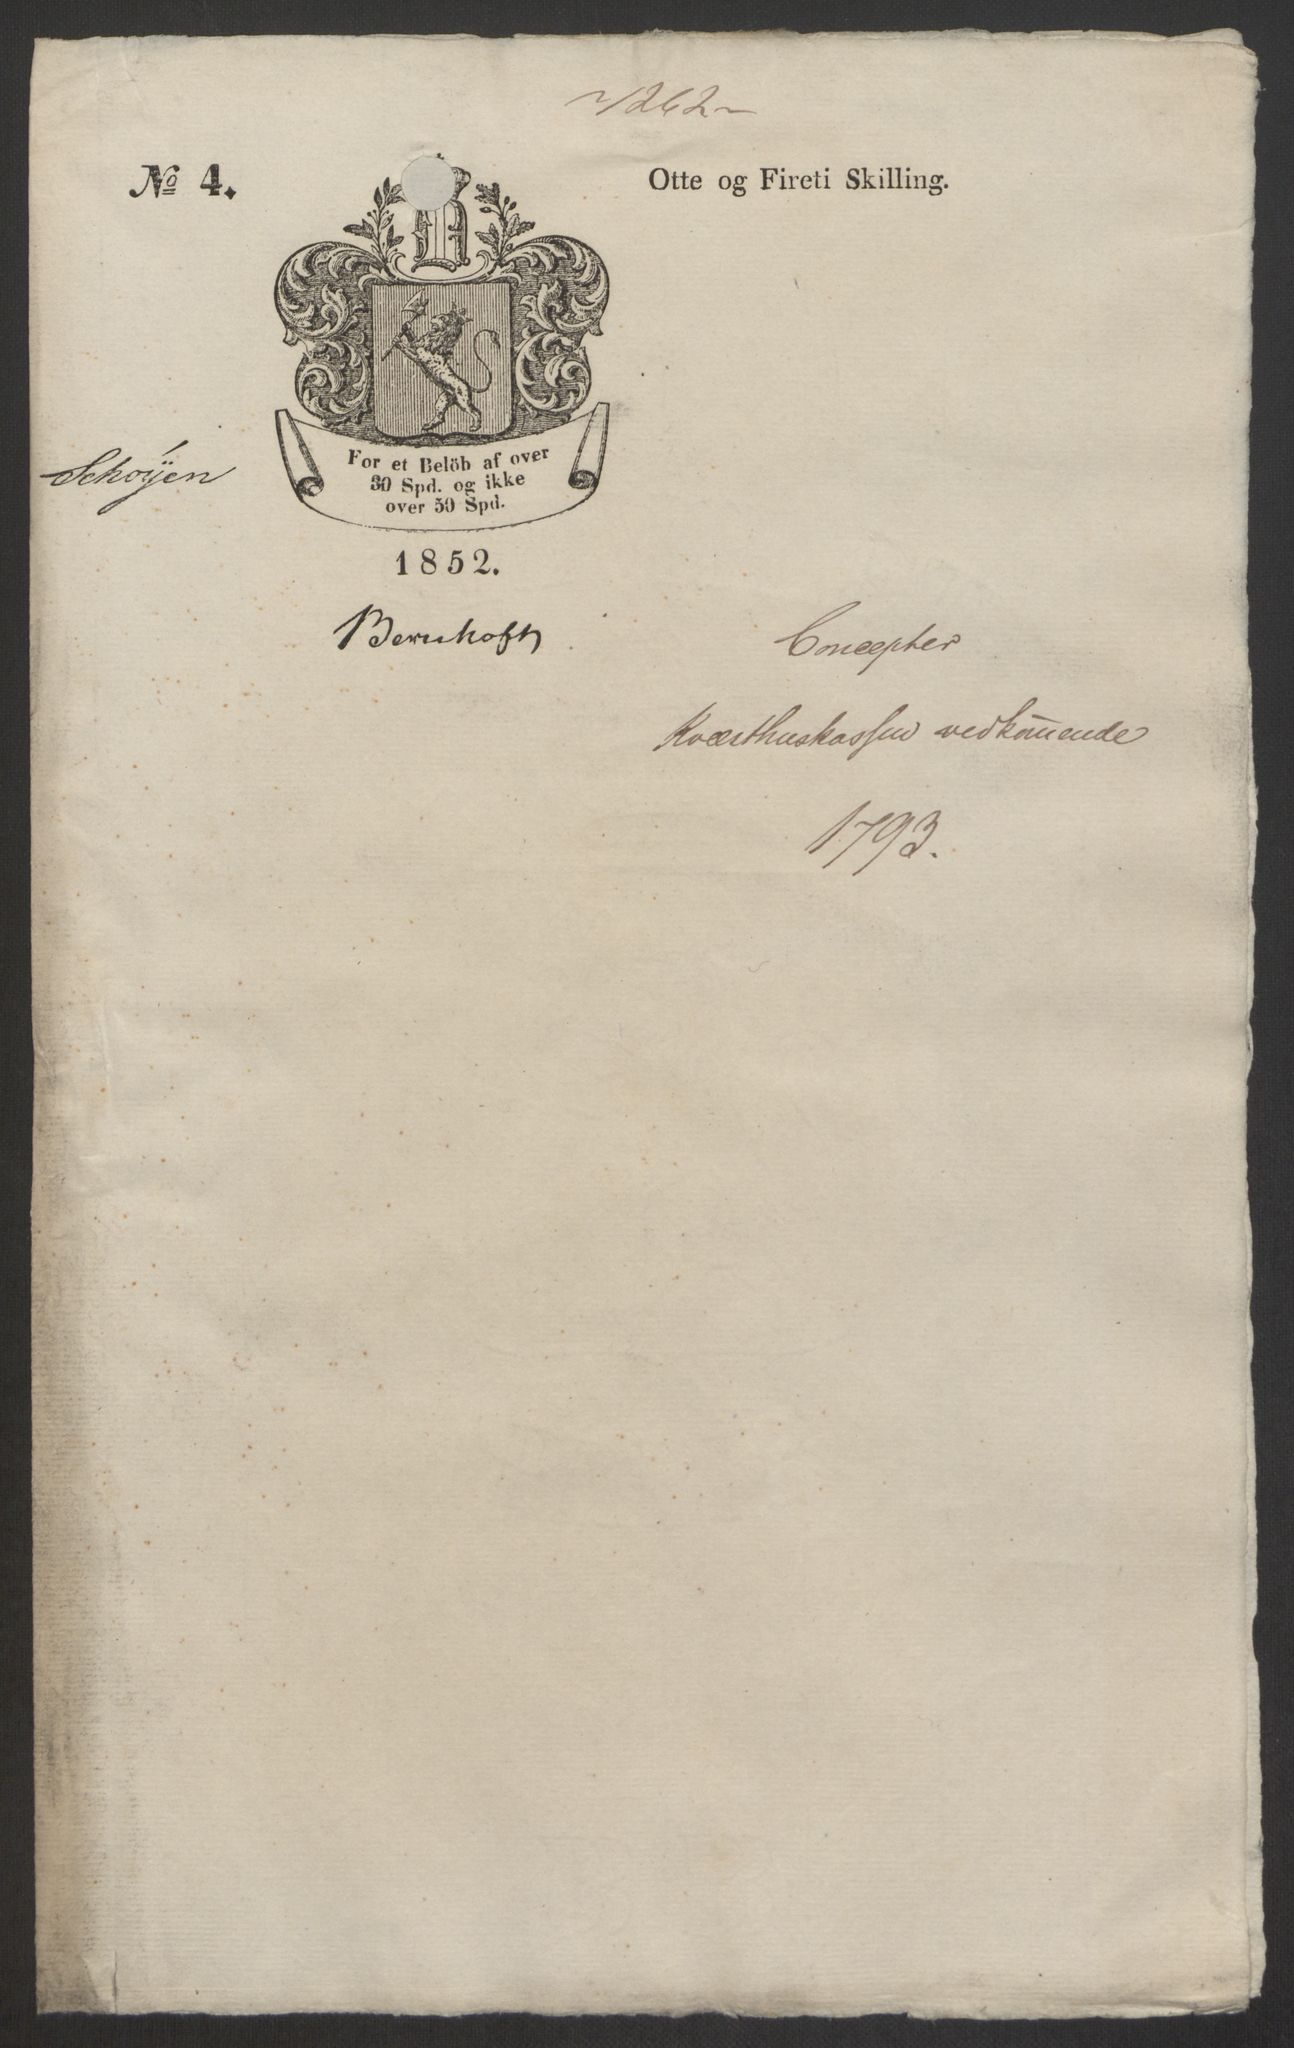 ~1262~
No 4.
Otte og Fireti Skilling.
For et Belöb af over
30 Spd. og ikke
over 50 Spd.
Schøÿen
1852.
Bernhoft
Concepter
Kvæsthuskassen vedkom̄ende
1793.